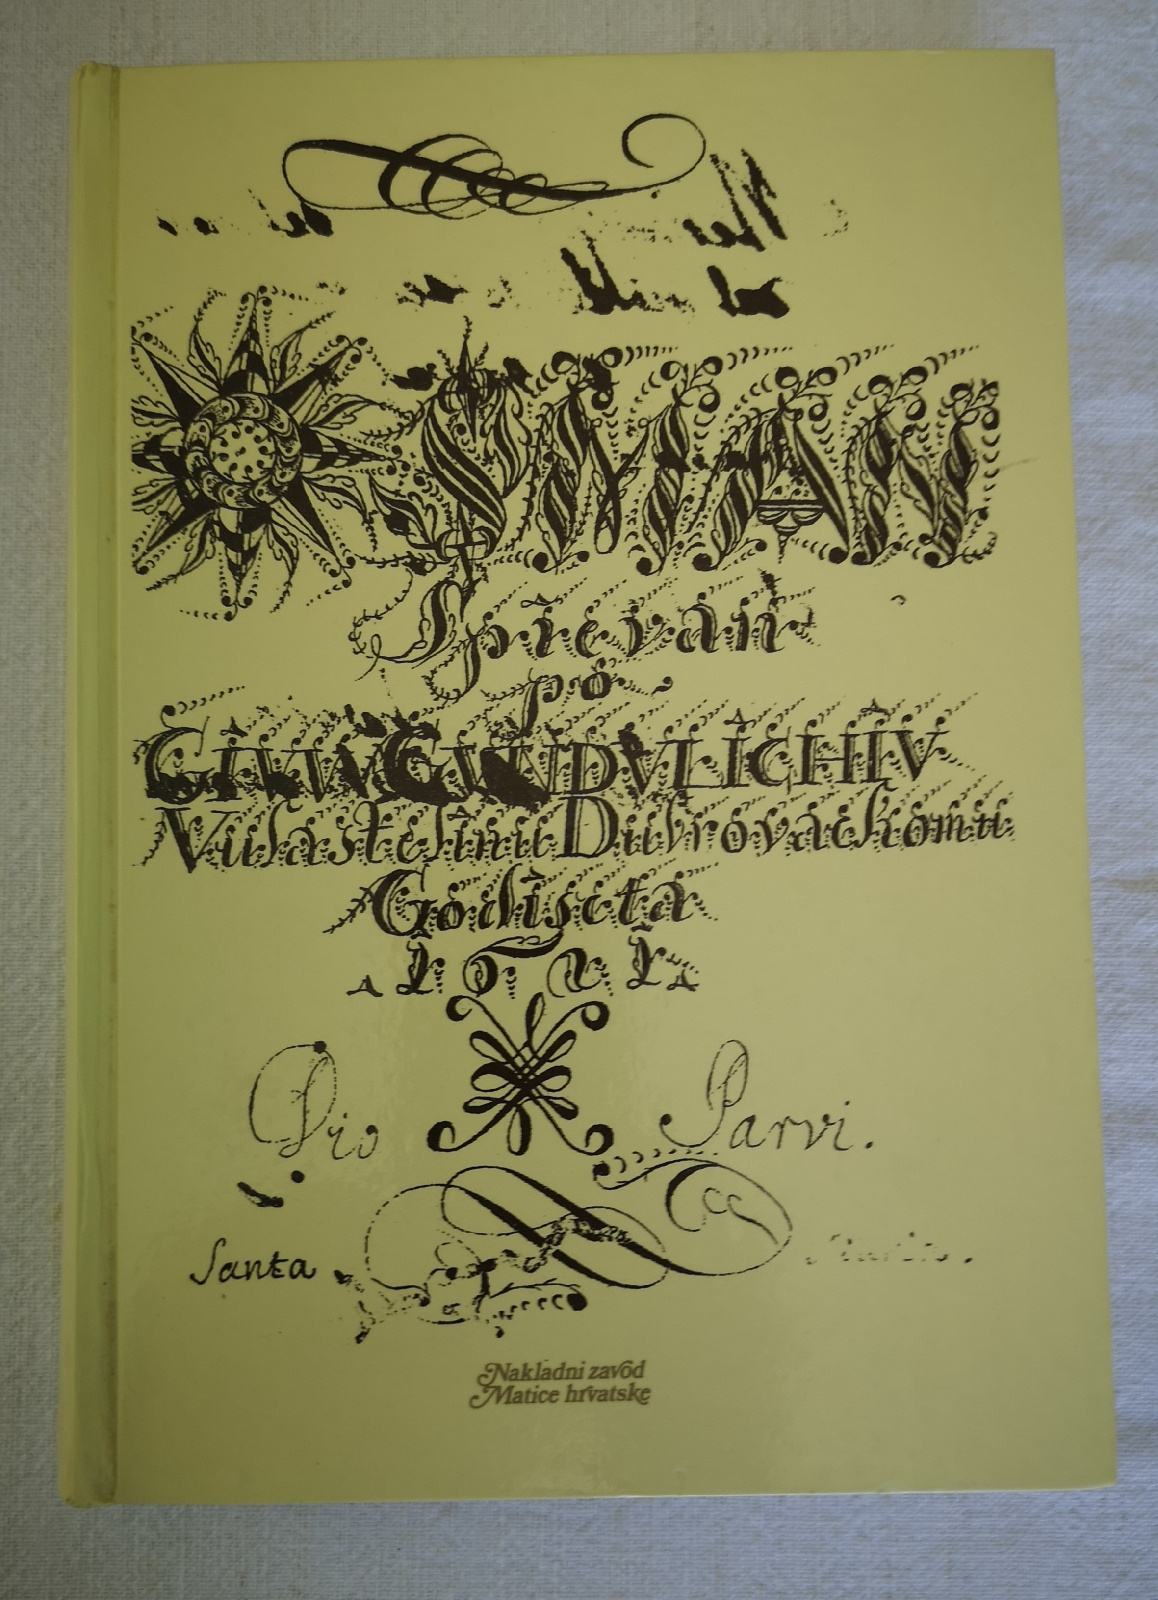 OSMAN
Spievan
po
GIVU GUNDVLICHIV
Vulastelinu Dubrovackomu
Godiscta
Dio Parvi.
Santa
Nakladni zavod
Matice hrvatske